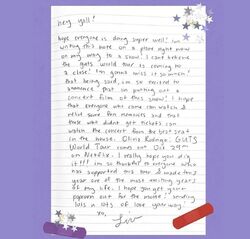 hey yall!
hope everyone is doing super well! im
writing this note on a plane right now
on my way to a show! i cant believe
the guts world tour is coming to
a close! im gonna miss it so much!
that being said, im so excited to
announce that im putting out a
concert film of this show! i hope
that everyone who came can watch &
relive some fun memories and that
those who didnt get tickets can
watch the concert from the best seat
in the house. Olivia Rodrigo: GUTS
World Tour comes out Oct 29th
on Netflix. I really hope you dig
it!!! im so thankful to everyone who
has supported this tour & made this
year one of the most exciting years
of my life. i hope you get your
popcorn out for the movie! sending
lots n lots of love your way!
xo,
Liv